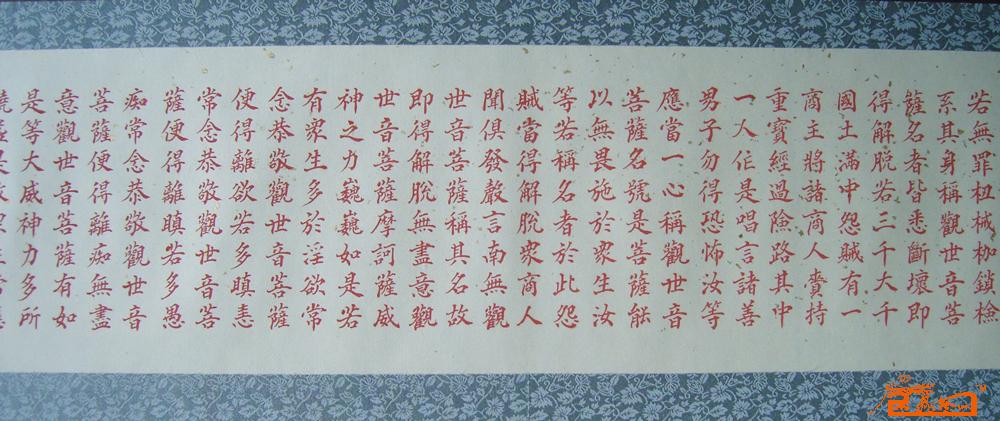 若無罪杻械枷鎖檢
系其身稱觀世音菩
薩名者皆悉斷壞即
得解脫若三千大千
國土滿中怨賊有一
商主將諸商人賫持
重寶經過險路其中
一人作是唱言諸善
男子勿得恐怖汝等
應當一心稱觀世音
菩薩名號是菩薩能
以無畏施於眾生汝
等若稱名者於此怨
賊當得解脫眾商人
聞俱發聲言南無觀
世音菩薩稱其名故
即得解脫無盡意觀
世音菩薩摩訶薩威
神之力巍巍如是若
有眾生多於淫欲常
念恭敬觀世音菩薩
便得離欲若多瞋恚
常念恭敬觀世音菩
薩便得離瞋若多愚
痴常念恭敬觀世音
菩薩便得離痴無盡
意觀世音菩薩有如
是等大威神力多所